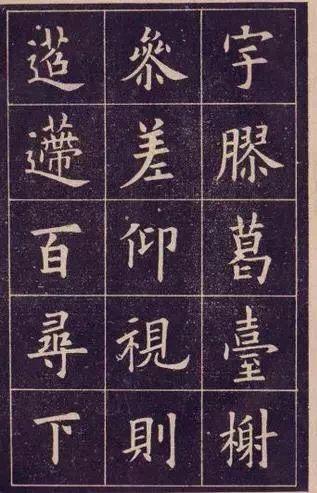 宇膠葛臺榭
參差仰視則
迢遰百尋下